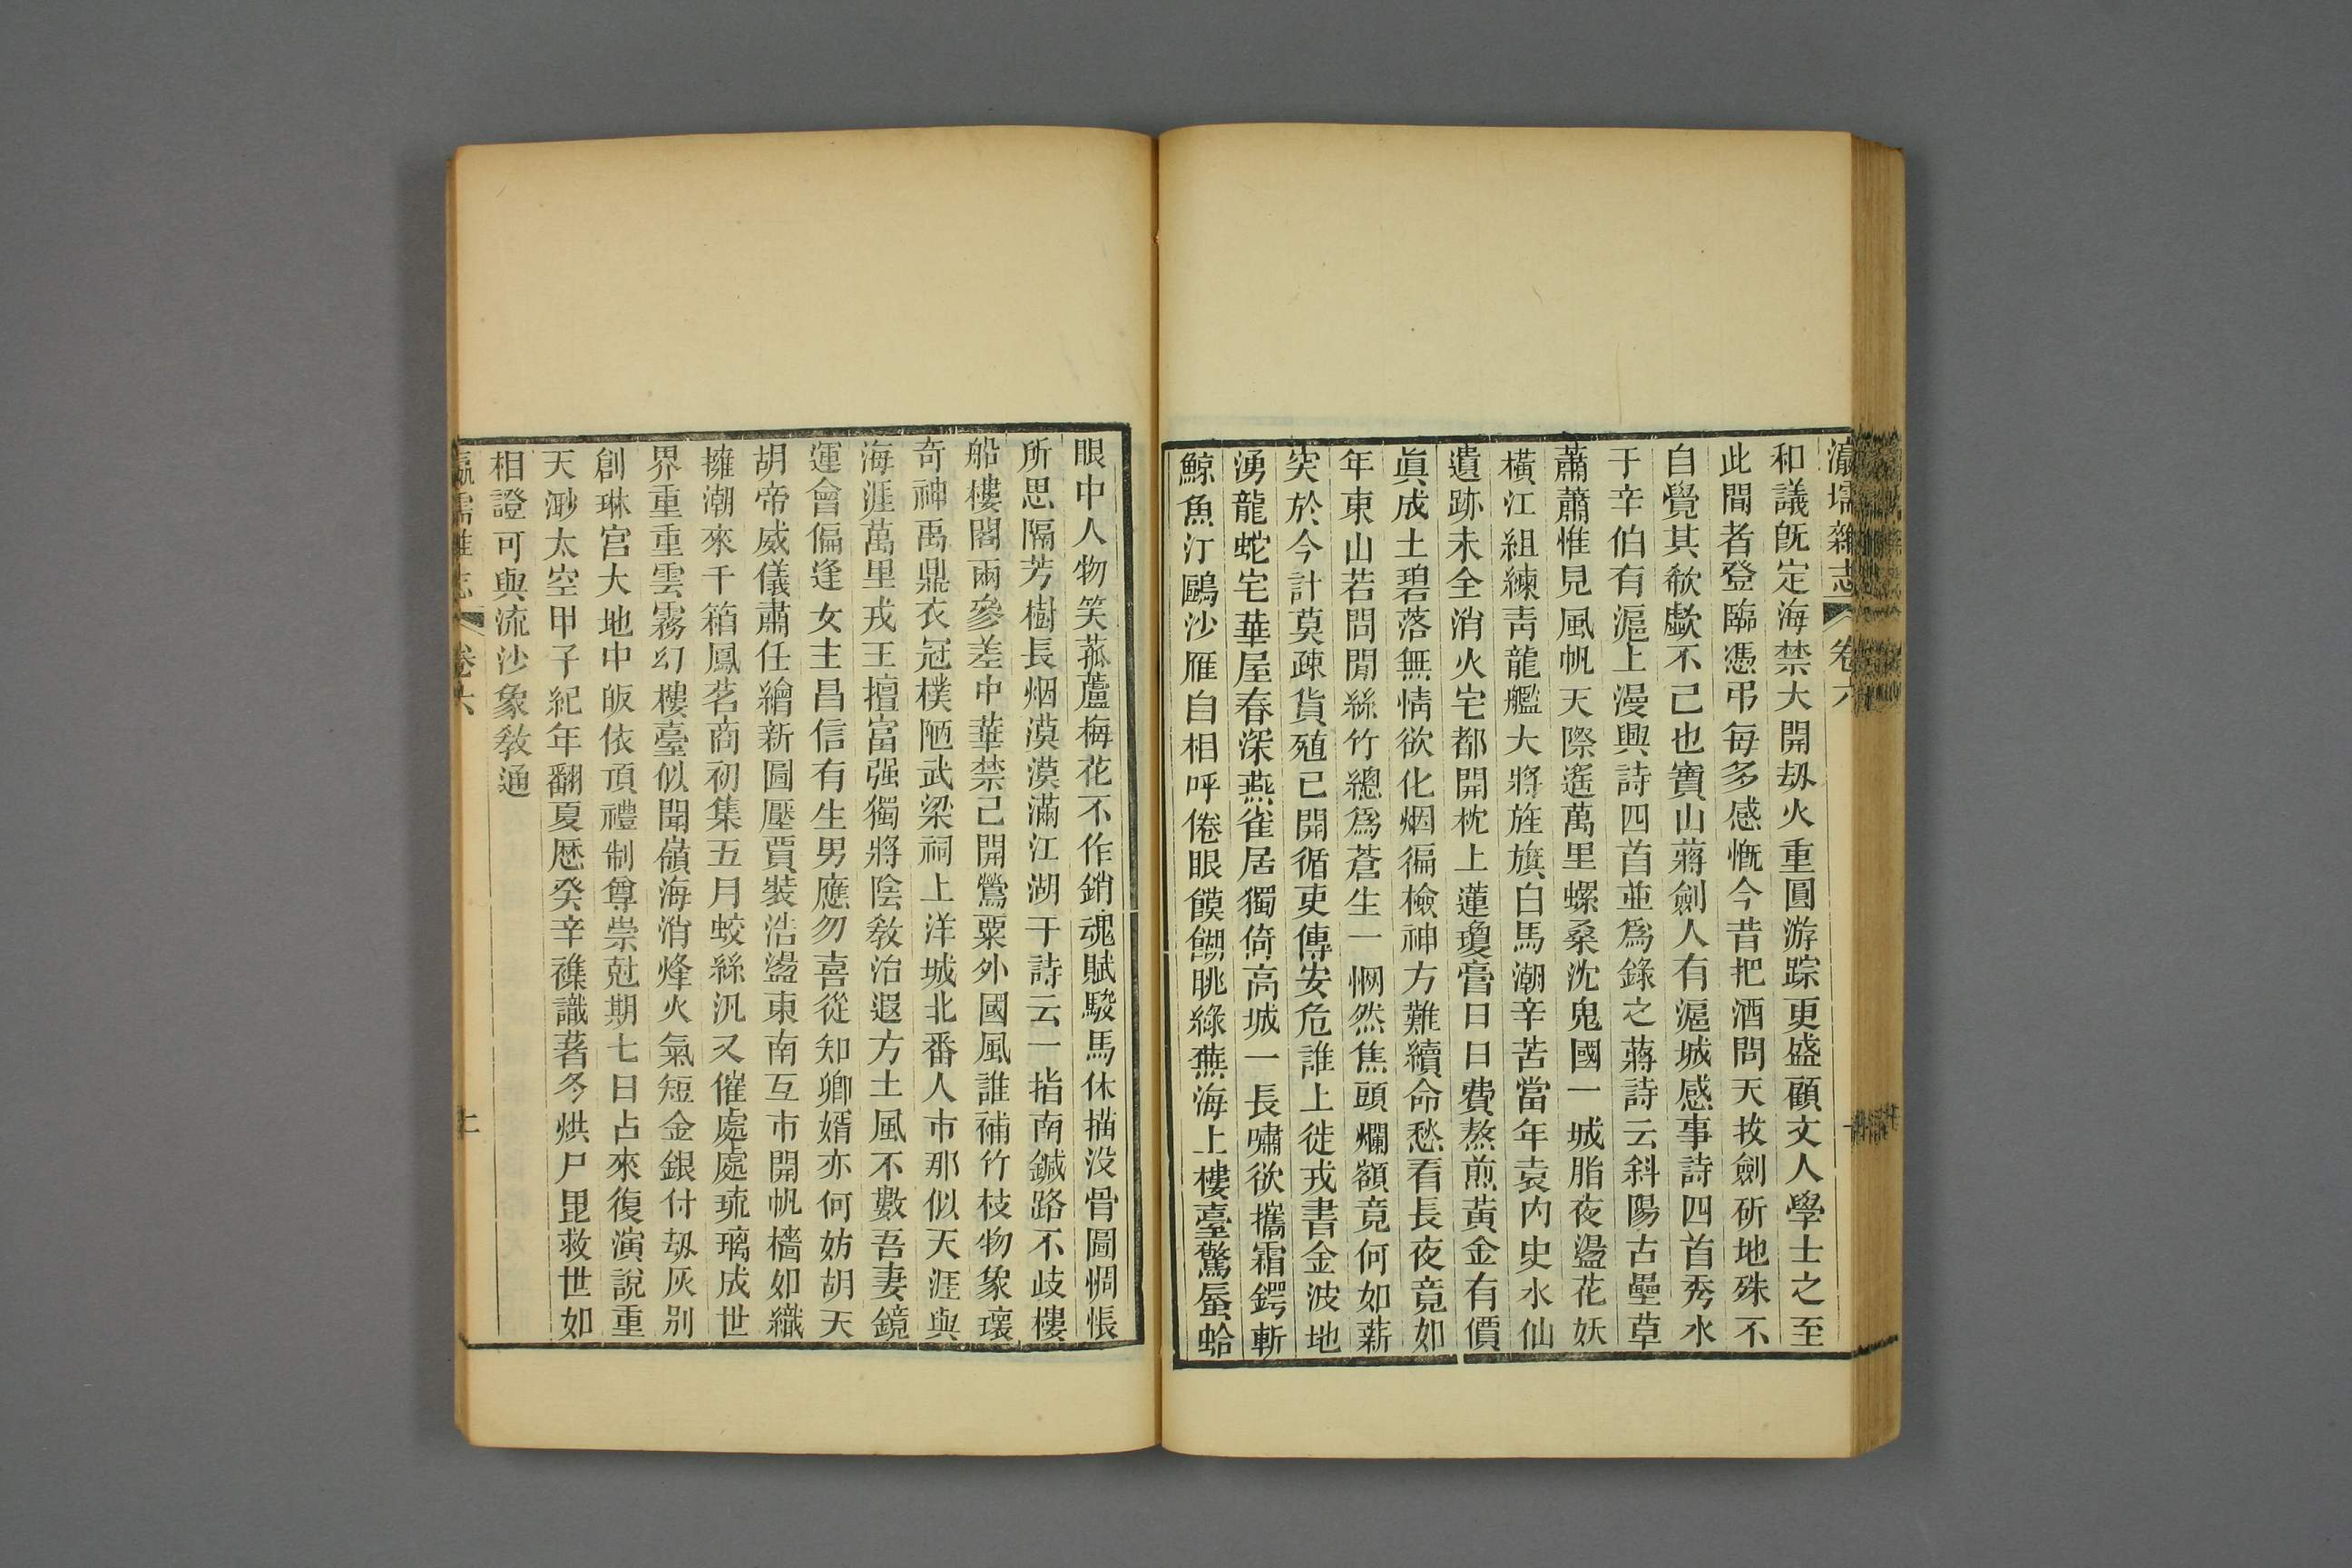 瀛壖雜志 卷六
和議旣定海禁大開刼火重圓游踪更盛顧文人學士之至
此間者登臨憑弔每多感慨今昔把酒問天㧞劍斫地殊不
自覺其欷歔不已也寶山蔣劍人有滬城感事詩四首秀水
于辛伯有滬上漫興詩四首並爲錄之蔣詩云斜陽古壘草
蕭蕭惟見風帆天際遙萬里螺桑沈鬼國一城脂夜盪花妖
橫江組練靑龍艦大將旌旗白馬潮辛苦當年袁内史水仙
遺跡未全消火宅都開枕上蓮瓊膏日日費熬煎黃金有價
眞成土碧落無情欲化烟徧檢神方難續命愁看長夜竟如
年東山若問閒絲竹總爲蒼生一惘然焦頭爛額竟何如薪
突於今計莫疎貨殖已開循吏傳安危誰上徙戎書金波地
湧龍蛇宅華屋春深燕雀居獨倚高城一長嘯欲攜霜鍔斬
鯨魚汀鷗沙雁自相呼倦眼饃餬眺綠蕪海上樓臺驚蜃蛤
眼中人物笑菰蘆梅花不作銷魂賦駿馬休描没骨圖惆悵
所思隔芳樹長烟漠漠滿江湖于詩云一指南鍼路不歧樓
船樓閣兩參差中華禁已開鶯粟外國風誰補竹枝物象瓌
奇神禹鼎衣冠樸陋武梁祠上洋城北番人市那似天涯與
海涯萬里戎王擅富强獨將陰敎治遐方土風不數吾妻鏡
運會偏逢女主昌信有生男應勿喜從知卿婿亦何妨胡天
胡帝威儀肅任繪新圖壓賈裝浩盪東南互市開帆檣如織
擁潮來千箱鳳茗商初集五月蛟絲汎又催處處琉璃成世
界重重雲霧幻樓臺似聞嶺海消烽火氣短金銀付刼灰别
創琳宫大地中皈依頂禮制尊崇尅期七日占來復演說重
天渺太空甲子紀年翻夏厯癸辛襍識著冬烘尸毘救世如
相證可與流沙象敎通
瀛壖雜志 卷六